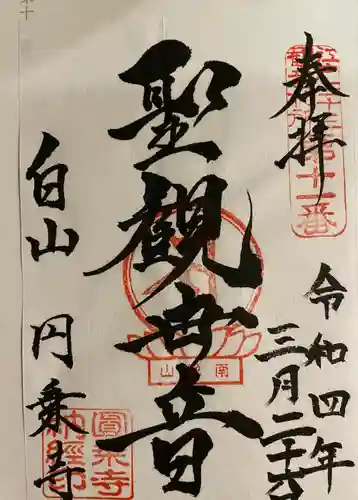 奉拝
第十一番
令和四年
三月二十六
聖観世音
南山
白山
円乗寺
圓乗寺